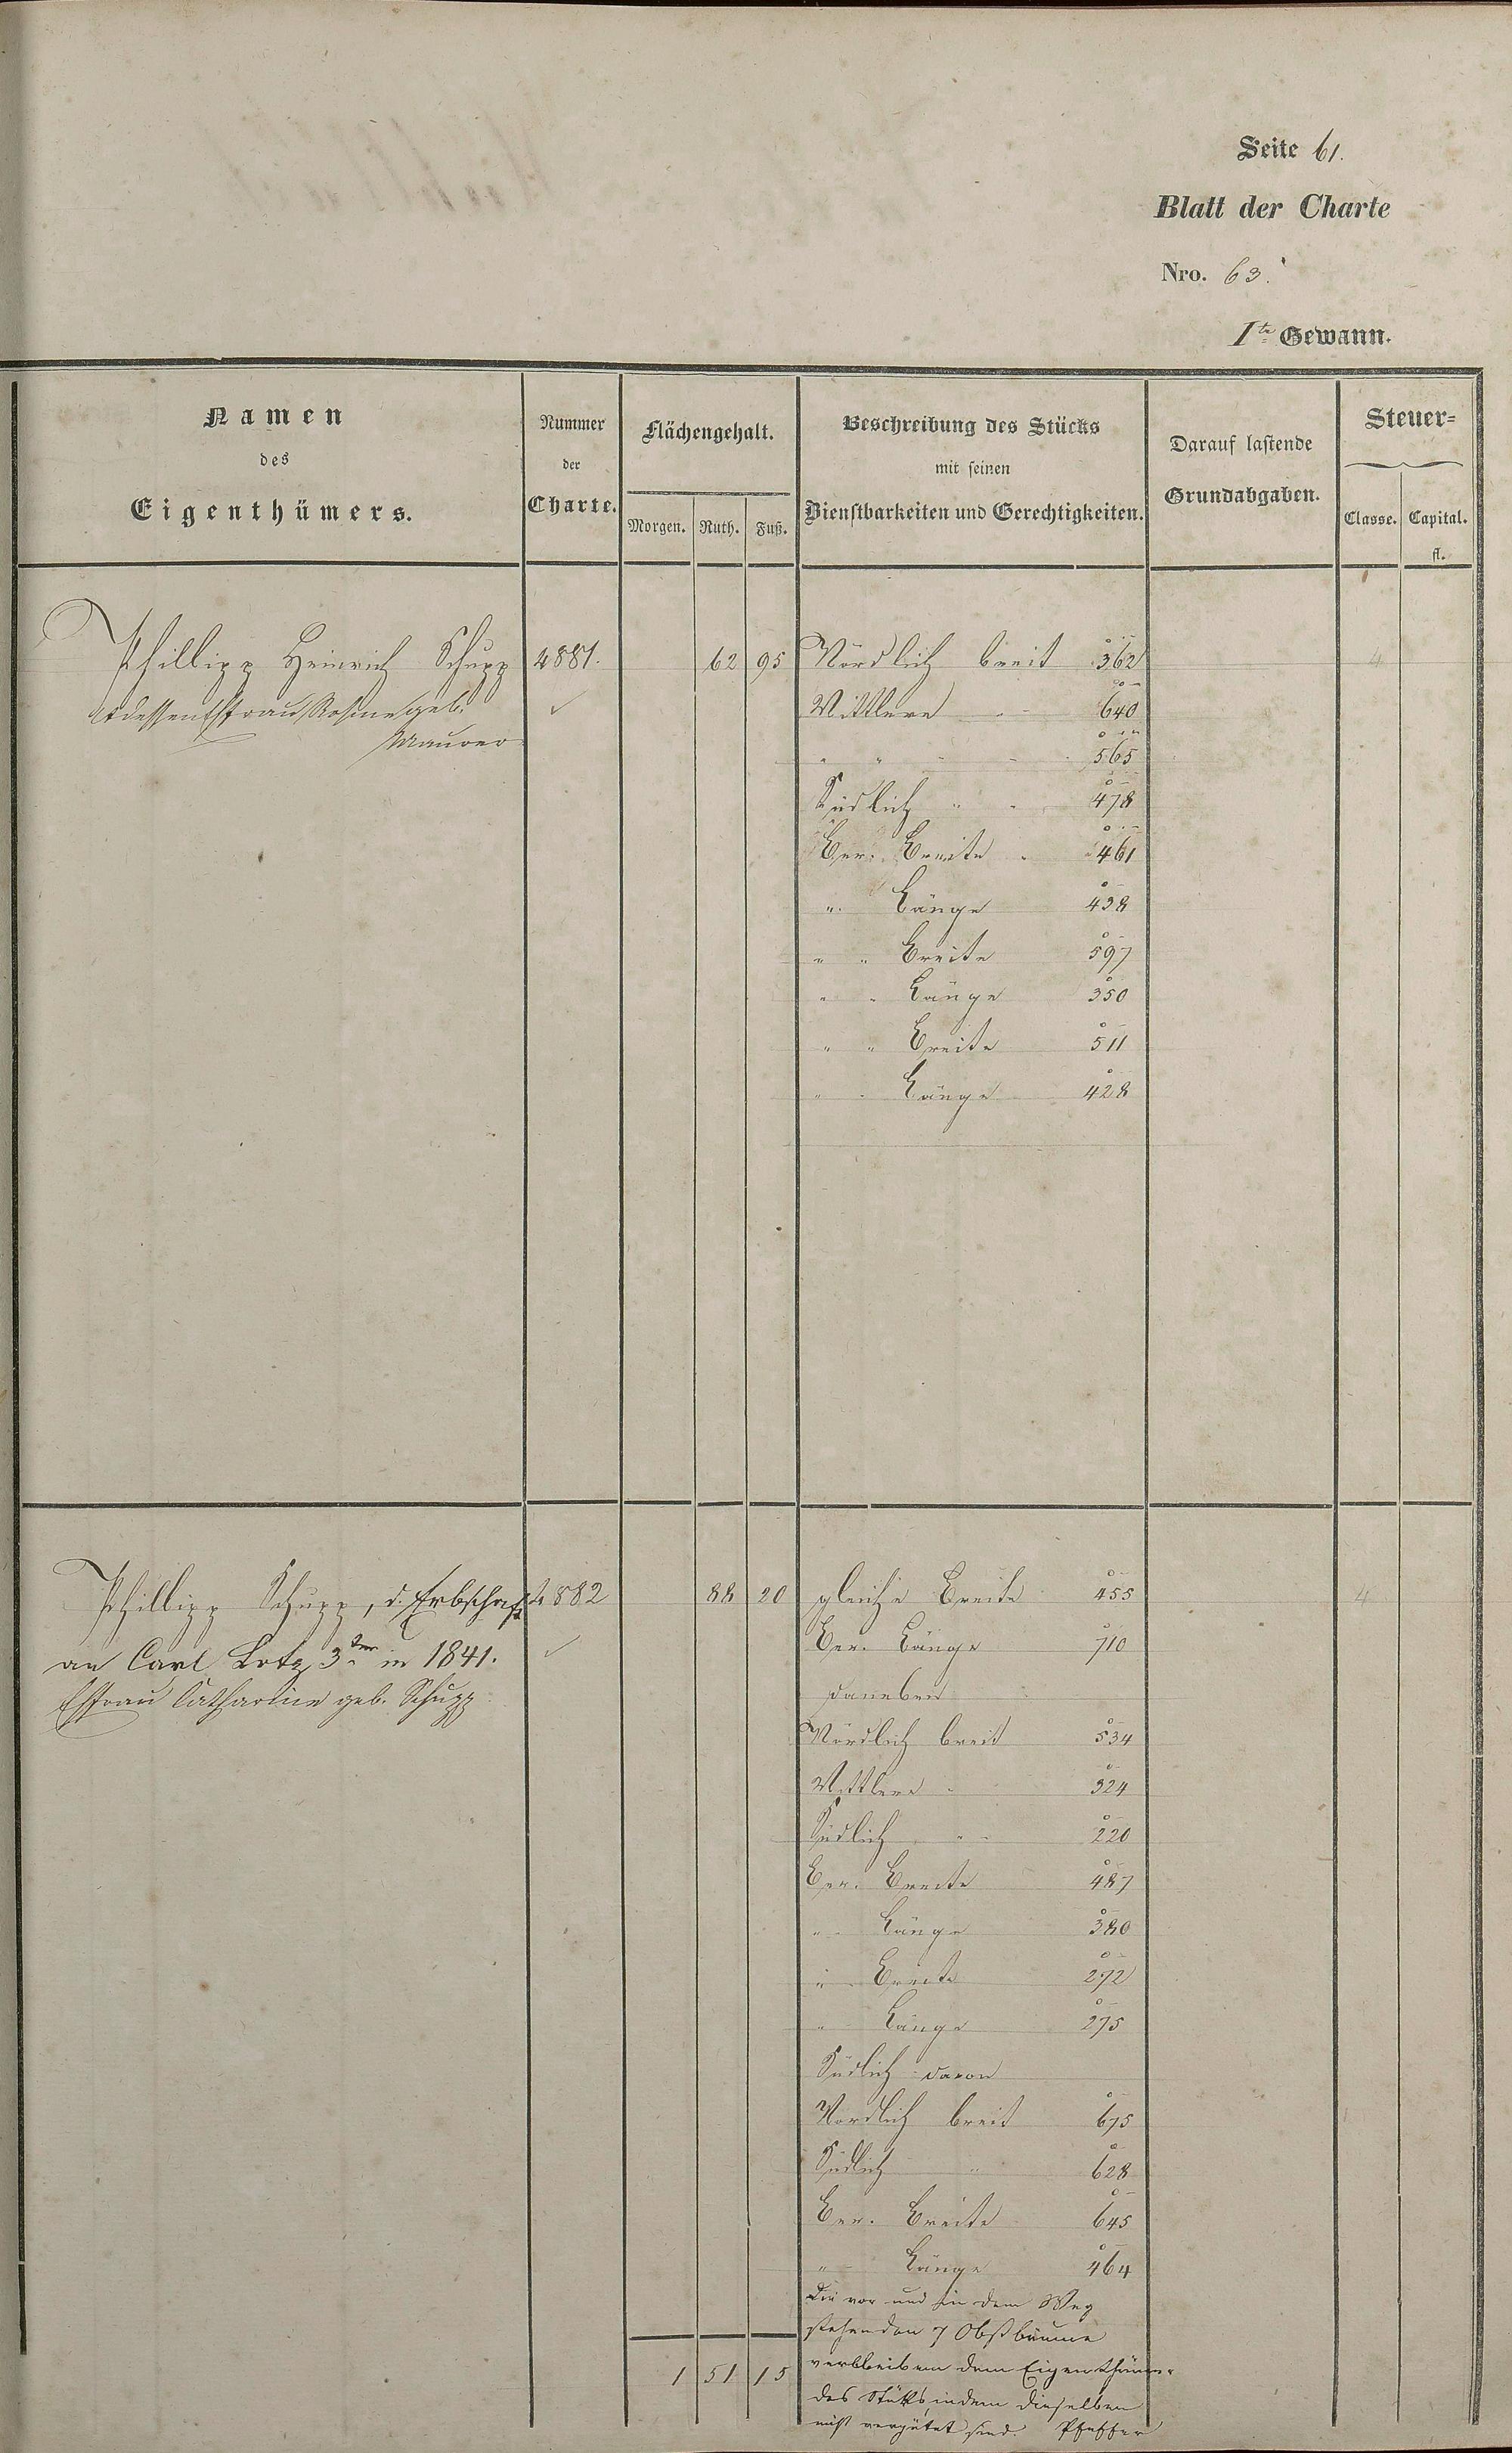 Seite 61.
Blatt der Charte
Nro. 63.
Ite Gewann.
Namen
des
Eigenthümers.
Nummer
der
Charte.
Flächengehalt.
Morgen. Ruth. Fuß.
Beschreibung des Stücks
mit seinen
Dienstbarkeiten und Gerechtigkeiten.
Darauf lastende
Grundabgaben.
Steuer-
Classe. Capital.
fl.
Phillipp Heinrich Schupp 4881. 62 95 Nördlich breit 362 4
dessen Ehfrau Rosine geb. Mittlere " 640
Maurer
" " " " 565
Südlich " " 478
Ber. Breite " 461
" Länge 438
" " Breite 597
" " Länge 350
" " Breite 511
" " Länge 428
Phillipp Schupp, d. Erbschaft 4882 88 20 gleiche Breite 455 4
an Carl Lotz 3ter in 1841. Ber. Länge 710
Ehfrau Catharine geb. Schupp daneben
Nördlich breit 534
Mittlere " 324
Südlich " " 220
Ber. Breite 487
" Länge 380
" Breite 272
" Länge 275
Südlich davon
Nördlich breit 675
Südlich " 628
Ber. Breite 645
" Länge 464
Die vor und in dem Weg
stehenden 7 Obstbäume
verbleiben dem Eigenthümer
1 51 15
des Stüks, indem dieselben
nicht vergütet sind. Pfeffer